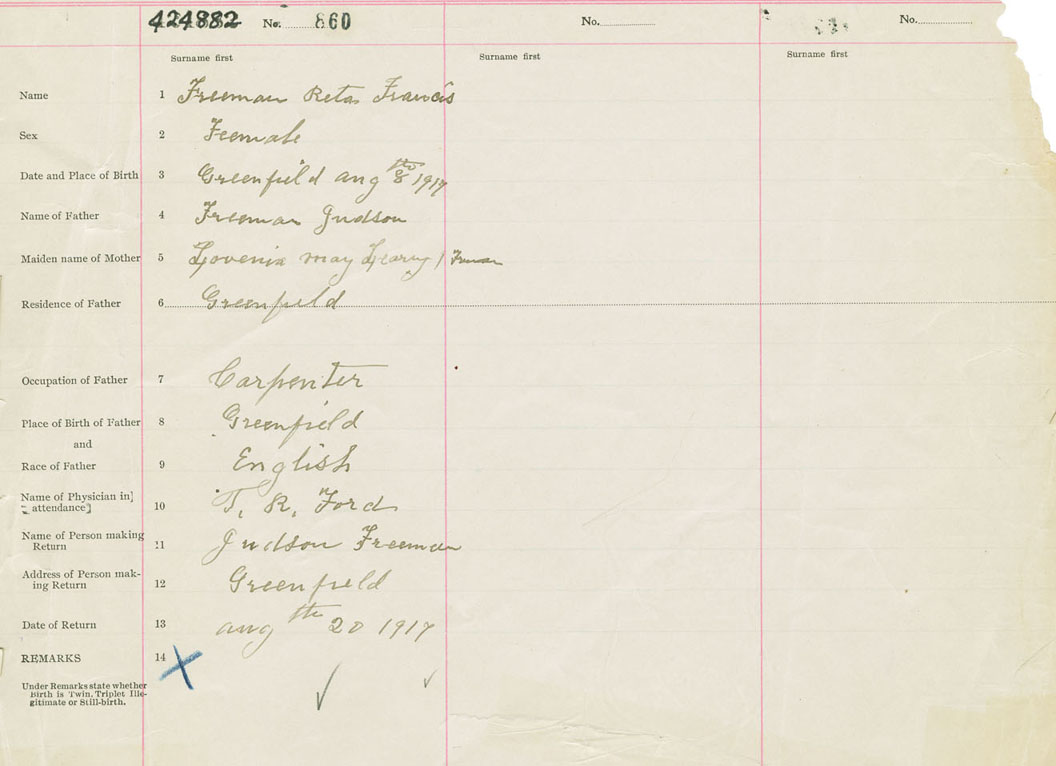 424882 No. 860 No. No.
Surname first Surname first Surname first
Name 1 Freeman Reta Francis
Sex 2 Feemale
Date and Place of Birth 3 Greenfield aug 8th 1917
Name of Father 4 Freeman Judson
Maiden name of Mother 5 Lovenia may / Freeman
Residence of Father 6 Greenfield
Occupation of Father 7 Carpenter
Place of Birth of Father 8 Greenfield
and
Race of Father 9 English
Name of Physician in]
attendance] 10 T. R. Ford
Name of Person making
Return 11 Judson Freeman
Address of Person mak-
ing Return 12 Greenfield
Date of Return 13 aug th 20 1917
REMARKS 14 X
Under Remarks state whether
Birth is Twin, Triplet Ille-
gitimate or Still-birth.